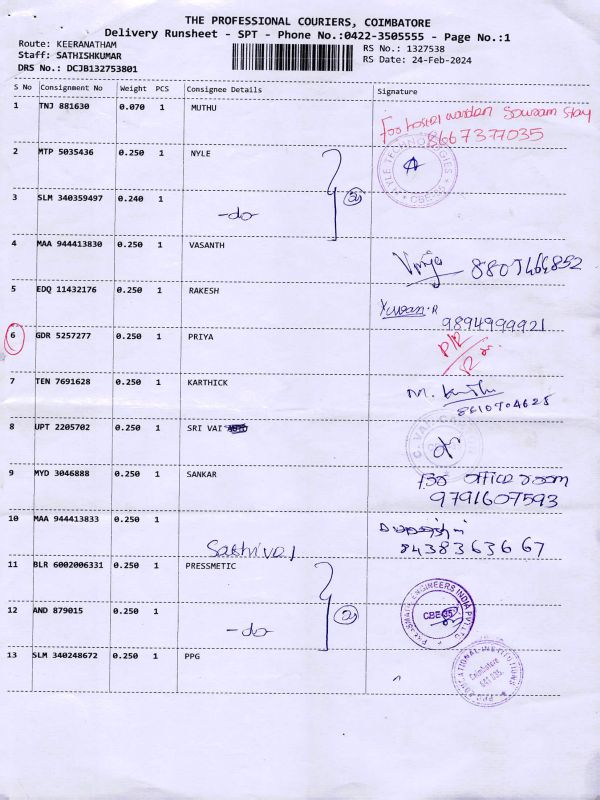 THE PROFESSIONAL COURIERS, COIMBATORE
Delivery Runsheet - SPT - Phone No.:0422-3505555 - Page No.:1
Route: KEERANATHAM
Staff: SATHISHKUMAR
DRS No.: DCJB132753801
RS No.: 1327538
RS Date: 24-Feb-2024
S No Consignment No Weight PCS Consignee Details Signature
1 TNJ 881630 0.070 1 MUTHU
For hostel warden Sowram Stay
8667377035
2 MTP 5035436 0.250 1 NYLE
3 SLM 340359497 0.240 1
-do-
4 MAA 944413830 0.250 1 VASANTH
8807464852
5 EDQ 11432176 0.250 1 RAKESH
9894999921
6 GDR 5257277 0.250 1 PRIYA
7 TEN 7691628 0.250 1 KARTHICK
8610704625
8 UPT 2205702 0.250 1 SRI VAI
9 MYD 3046888 0.250 1 SANKAR
For office room
9791607593
10 MAA 944413833 0.250 1
Sakthivel
8438363667
11 BLR 6002006331 0.250 1 PRESSMETIC
12 AND 879015 0.250 1
-do-
CBE-35
13 SLM 340248672 0.250 1 PPG
PPG EDUCATIONAL INSTITUTIONS
Coimbatore
641 035